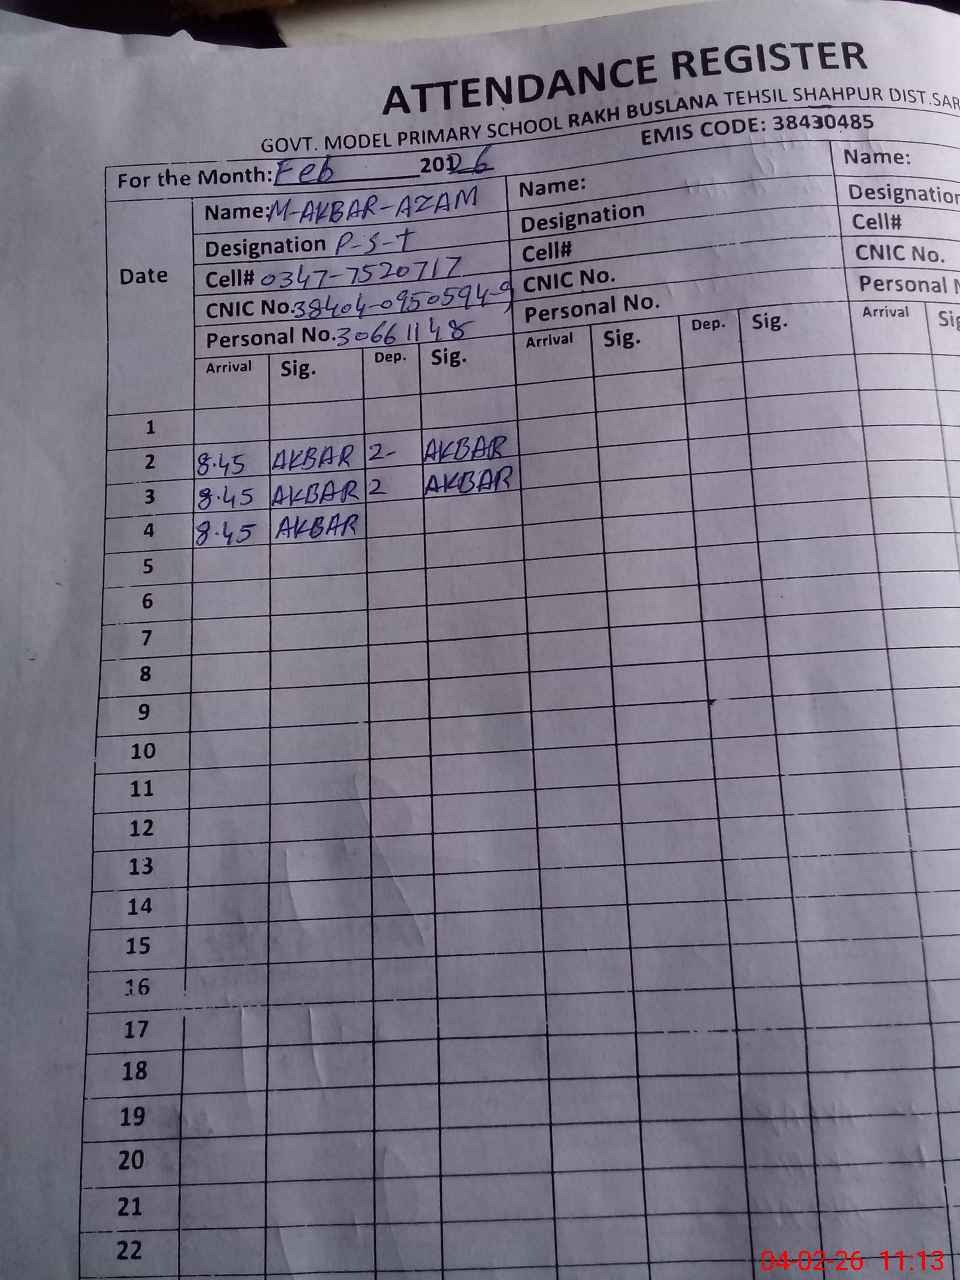 ATTENDANCE REGISTER
GOVT. MODEL PRIMARY SCHOOL RAKH BUSLANA TEHSIL SHAHPUR DIST.SAR
EMIS CODE: 38430485
For the Month: Feb 2026
Date
Name: M-AKBAR-AZAM
Designation P-S-T
Cell# 0347-7520717
CNIC No. 38404-0950594-9
Personal No. 30661148
Arrival Sig. Dep. Sig.
Name:
Designation
Cell#
CNIC No.
Personal No.
Arrival Sig. Dep. Sig.
Name:
Designation
Cell#
CNIC No.
Personal N
Arrival Sig
1
2 8.45 AKBAR 2- AKBAR
3 8.45 AKBAR 2 AKBAR
4 8.45 AKBAR
5
6
7
8
9
10
11
12
13
14
15
16
17
18
19
20
21
22
04-02-26 11:13